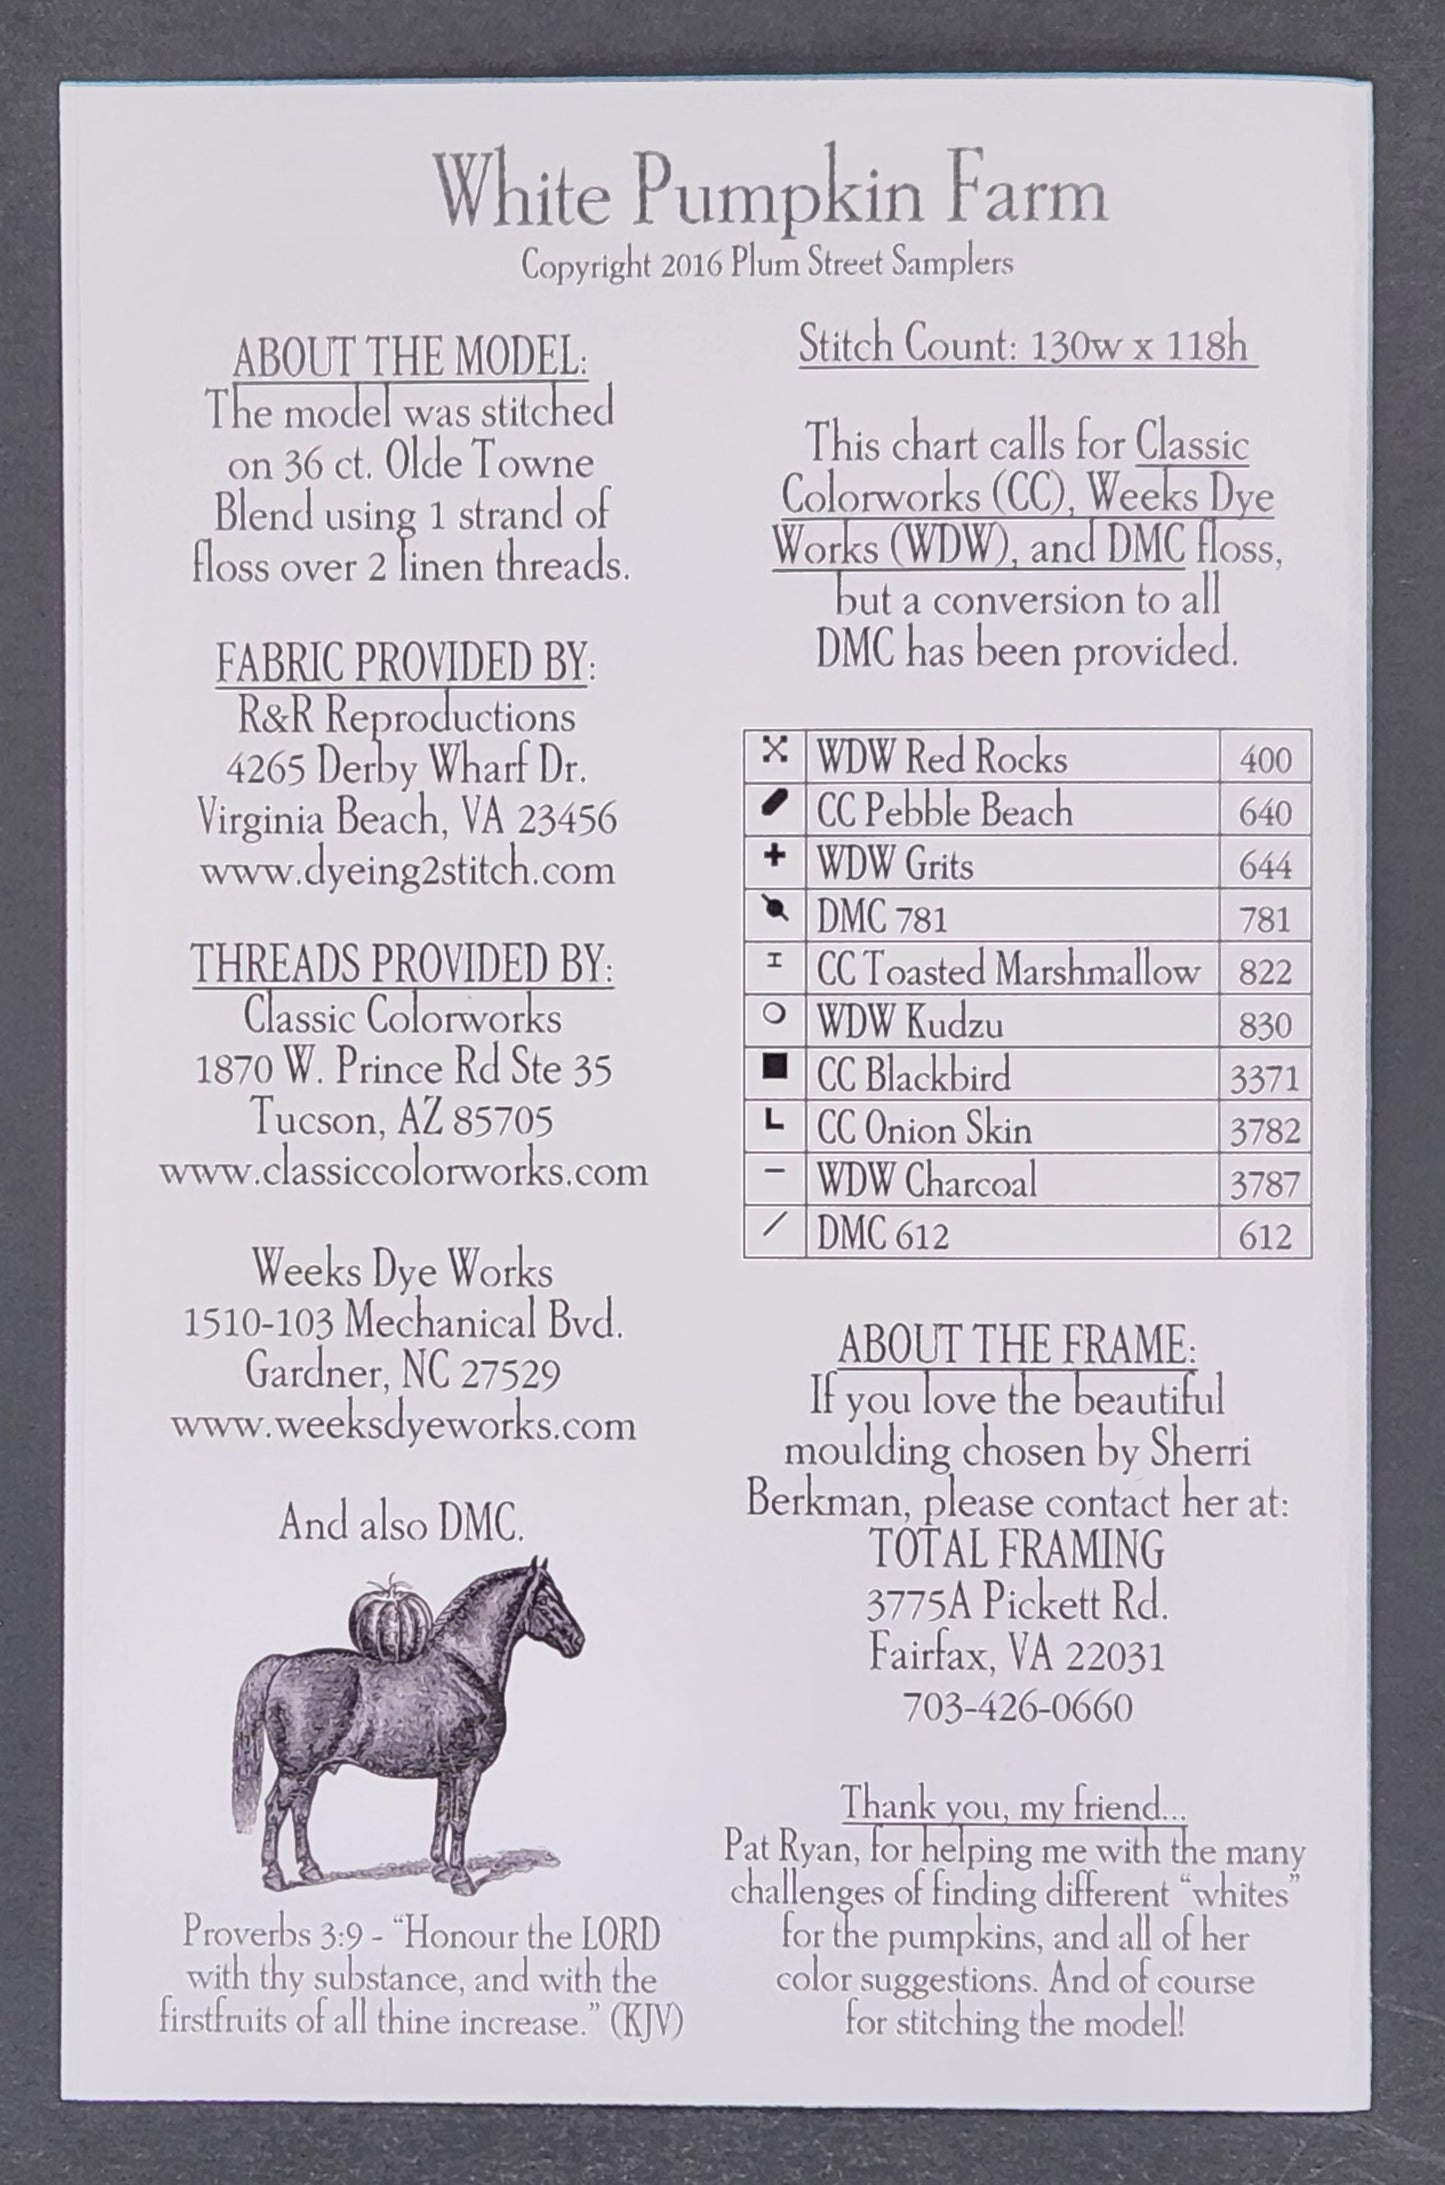 White Pumpkin Farm
Copyright 2016 Plum Street Samplers
ABOUT THE MODEL:
The model was stitched
on 36 ct. Olde Towne
Blend using 1 strand of
floss over 2 linen threads.
FABRIC PROVIDED BY:
R&R Reproductions
4265 Derby Wharf Dr.
Virginia Beach, VA 23456
www.dyeing2stitch.com
THREADS PROVIDED BY:
Classic Colorworks
1870 W. Prince Rd Ste 35
Tucson, AZ 85705
www.classiccolorworks.com
Weeks Dye Works
1510-103 Mechanical Bvd.
Gardner, NC 27529
www.weeksdyeworks.com
And also DMC.
Proverbs 3:9 - “Honour the LORD
with thy substance, and with the
firstfruits of all thine increase.” (KJV)
Stitch Count: 130w x 118h
This chart calls for Classic
Colorworks (CC), Weeks Dye
Works (WDW), and DMC floss,
but a conversion to all
DMC has been provided.
WDW Red Rocks 400
CC Pebble Beach 640
WDW Grits 644
DMC 781 781
CC Toasted Marshmallow 822
WDW Kudzu 830
CC Blackbird 3371
CC Onion Skin 3782
WDW Charcoal 3787
DMC 612 612
ABOUT THE FRAME:
If you love the beautiful
moulding chosen by Sherri
Berkman, please contact her at:
TOTAL FRAMING
3775A Pickett Rd.
Fairfax, VA 22031
703-426-0660
Thank you, my friend...
Pat Ryan, for helping me with the many
challenges of finding different “whites”
for the pumpkins, and all of her
color suggestions. And of course
for stitching the model!